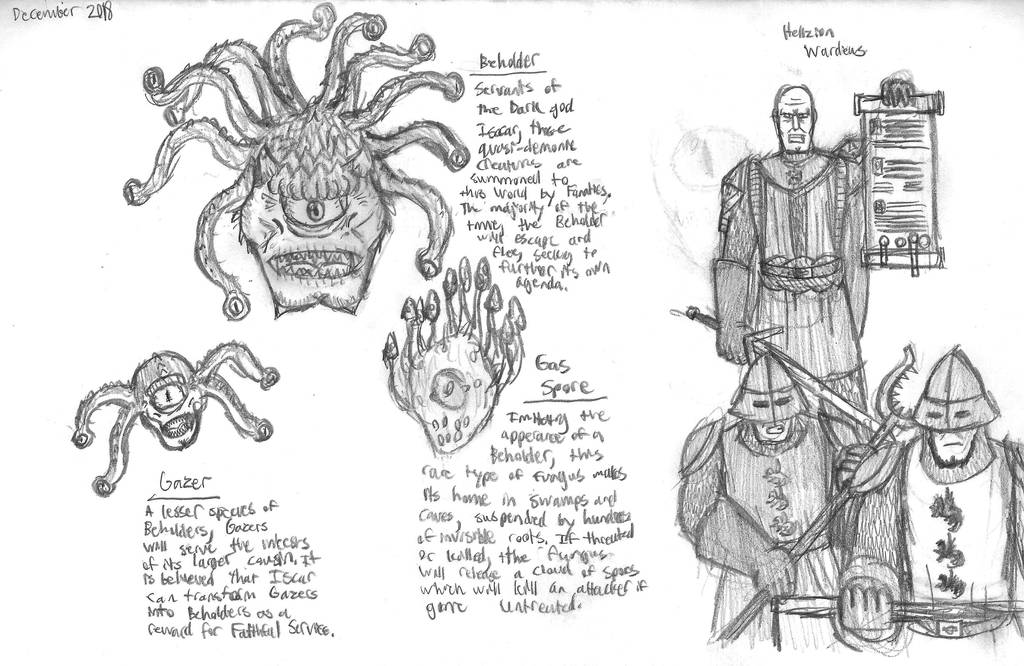 December 2018
Beholder
Servants of
the Dark god
Iscar, these
quasi-demonic
creatures are
summoned to
this world by Fanatics,
The majority of the
time, the Beholder
will escape and
flee, seeking to
further its own
agenda.
Hellzion
Wardens
Gas
Spore
Imitating the
apperance of a
Beholder, this
rare type of Fungus makes
its home in swamps and
caves, suspended by hundreds
of invisible roots, If threated
or killed, the fungus
will release a cloud of spores
which will kill an attacker if
gone untreated.
Gazer
A lesser species of
Beholders, Gazers
will serve the interests
of its larger cousin. It
is believed that Iscar
can transform Gazers
into Beholders as a
reward for Faithful Service.